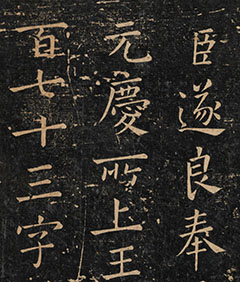 臣遂良奉
元慶所上王
百七十三字